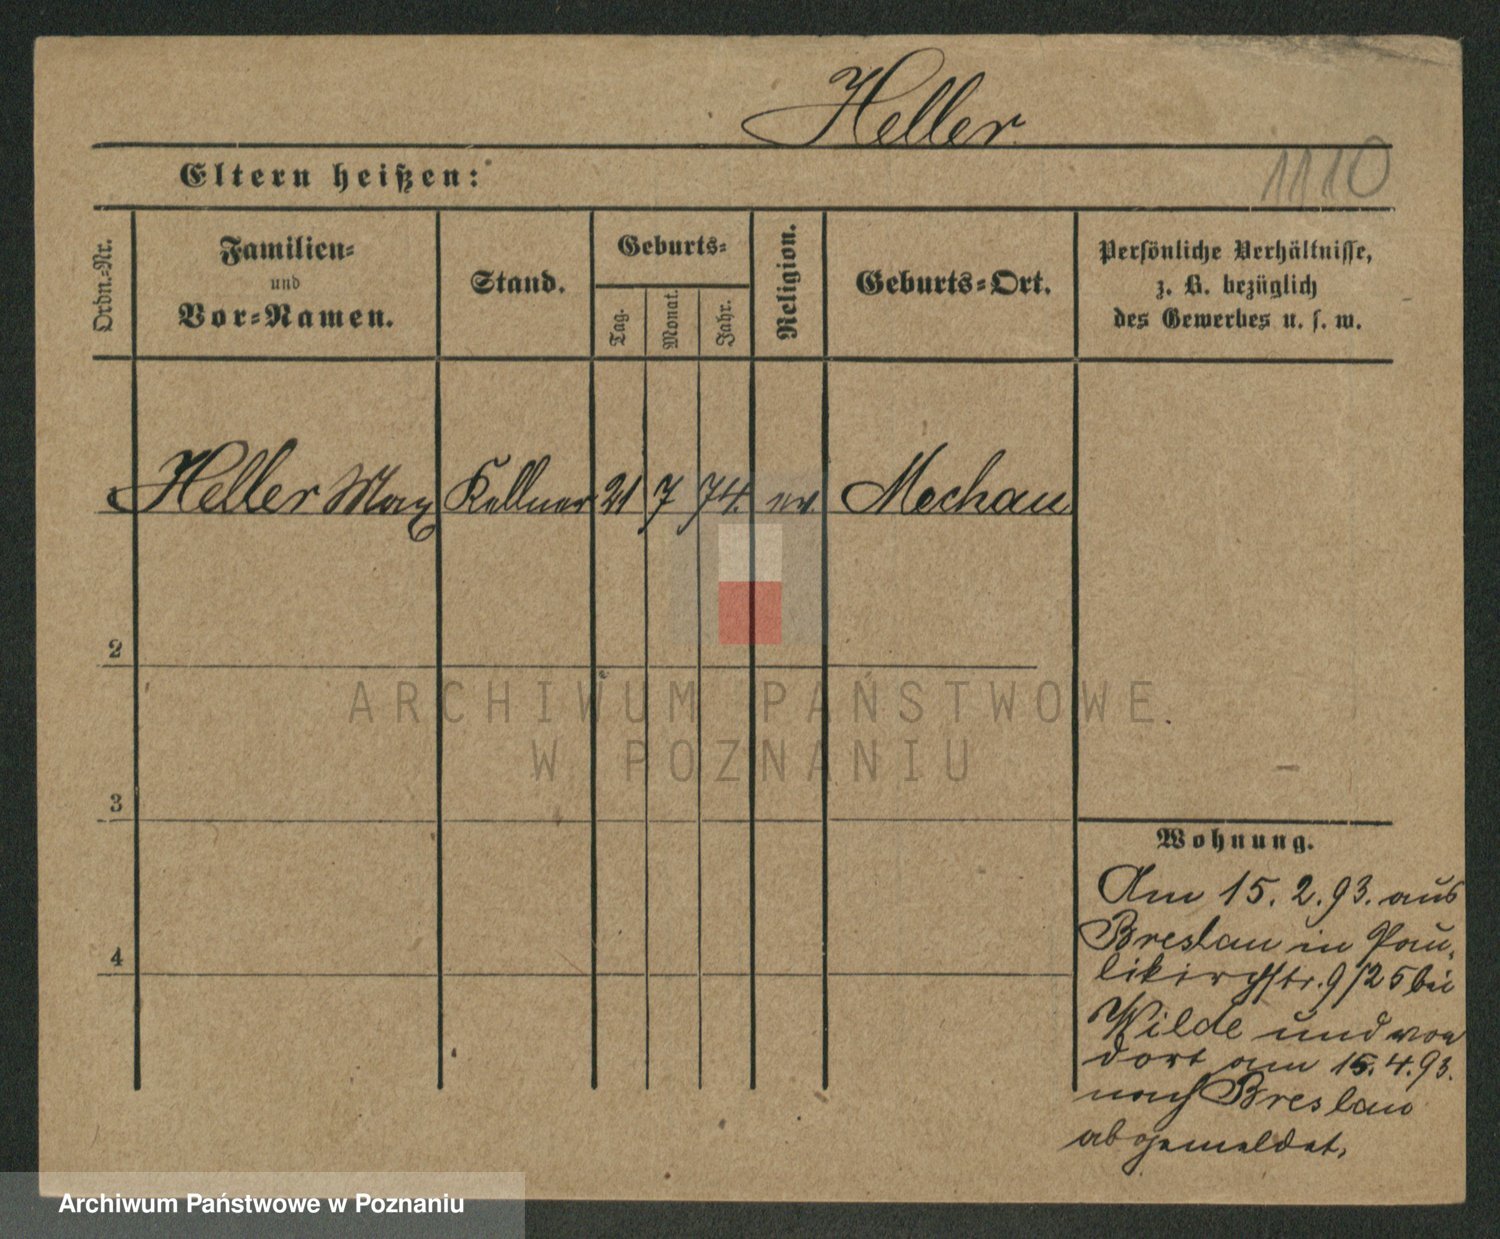 Heller
Eltern heißen:
1110
Ordn.-Nr.
Familien-
und
Vor-Namen.
Stand.
Geburts-
Tag.
Monat.
Jahr.
Religion.
Geburts-Ort.
Persönliche Verhältnisse,
z. B. bezüglich
des Gewerbes u. s. w.
Heller Max Kellner 21 7 74. ev. Mechau
2
3
4
Wohnung.
Am 15. 2. 93. aus
Breslau in Pau-
likirchstr. 9/25 bei
Wilde und von
dort am 15. 4. 93.
nach Breslau
abgemeldet.
ARCHIWUM PAŃSTWOWE
W POZNANIU
Archiwum Państwowe w Poznaniu